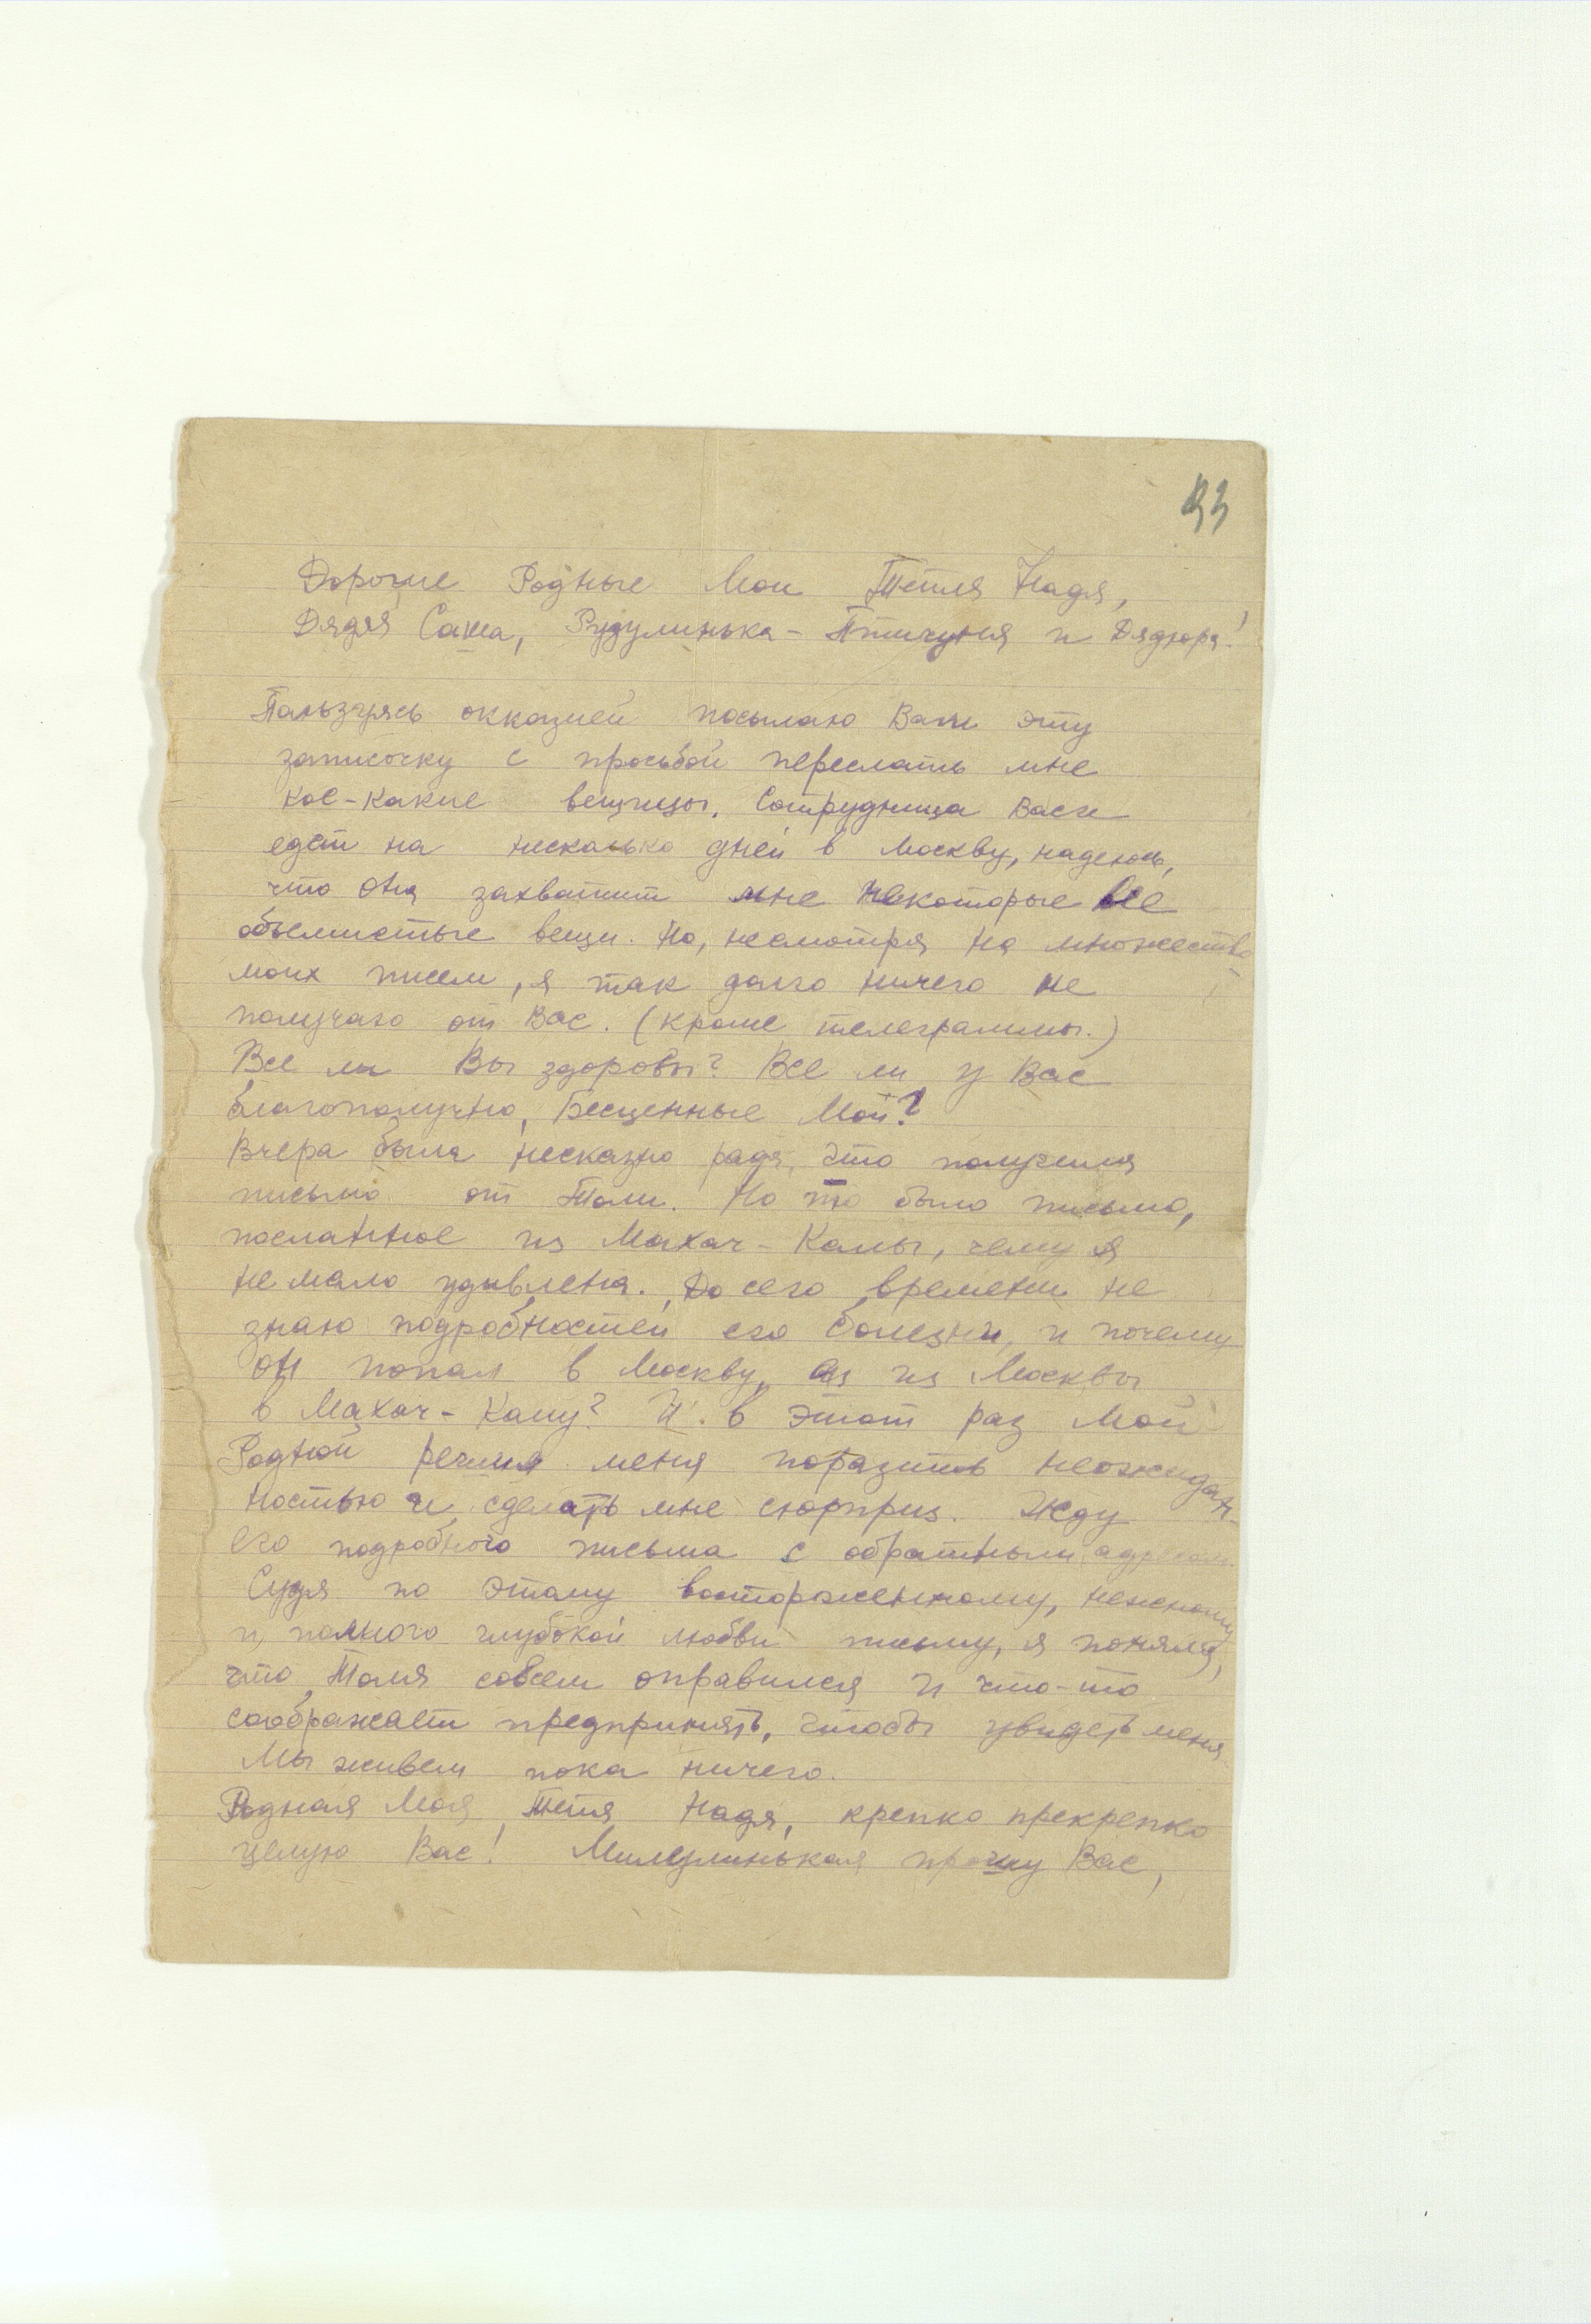 93
Дорогие Родные Мои Тетя Надя,
Дядя Саша, Рудулинька - Птичуня и Дядюра!
Пользуясь оккозией посылаю Вам эту
записочку с просьбой переслать мне
кое-какие вещицы. Сотрудница Васи
едет на несколько дней в Москву, надеюсь,
что она захватит мне некоторые
объемистые вещи. Но, несмотря на множество
моих писем, я так долго ничего не
получаю от Вас. (кроме телеграммы.)
Все ли Вы здоровы? Все ли у Вас
благополучно, Бесценные Мои?
Вчера была несказно рада, что получила
письмо от Толи. Но то было письмо,
посланное из Махач-Калы, чему я
не мало удивлена. До сего времени не
знаю подробностей его болезни, и почему
он попал в Москву, а из Москвы
в Махач-Калу? И в этот раз Мой
Родной решил меня поразить неожидан-
ностью и сделать мне сюрприз. Жду
его подробного письма с обратным адресом.
Судя по этому восторженному, нежному
и полного глубокой любви письму, я поняла,
что Толя совсем оправился и что-то
соображает предпринять, чтобы увидеть меня.
Мы живем пока ничего.
Родная Моя Тетя Надя, крепко прекрепко
целую Вас! Милулинькая прошу Вас,